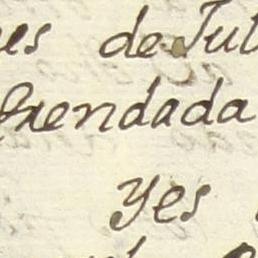 es de Jul
rendada
yes